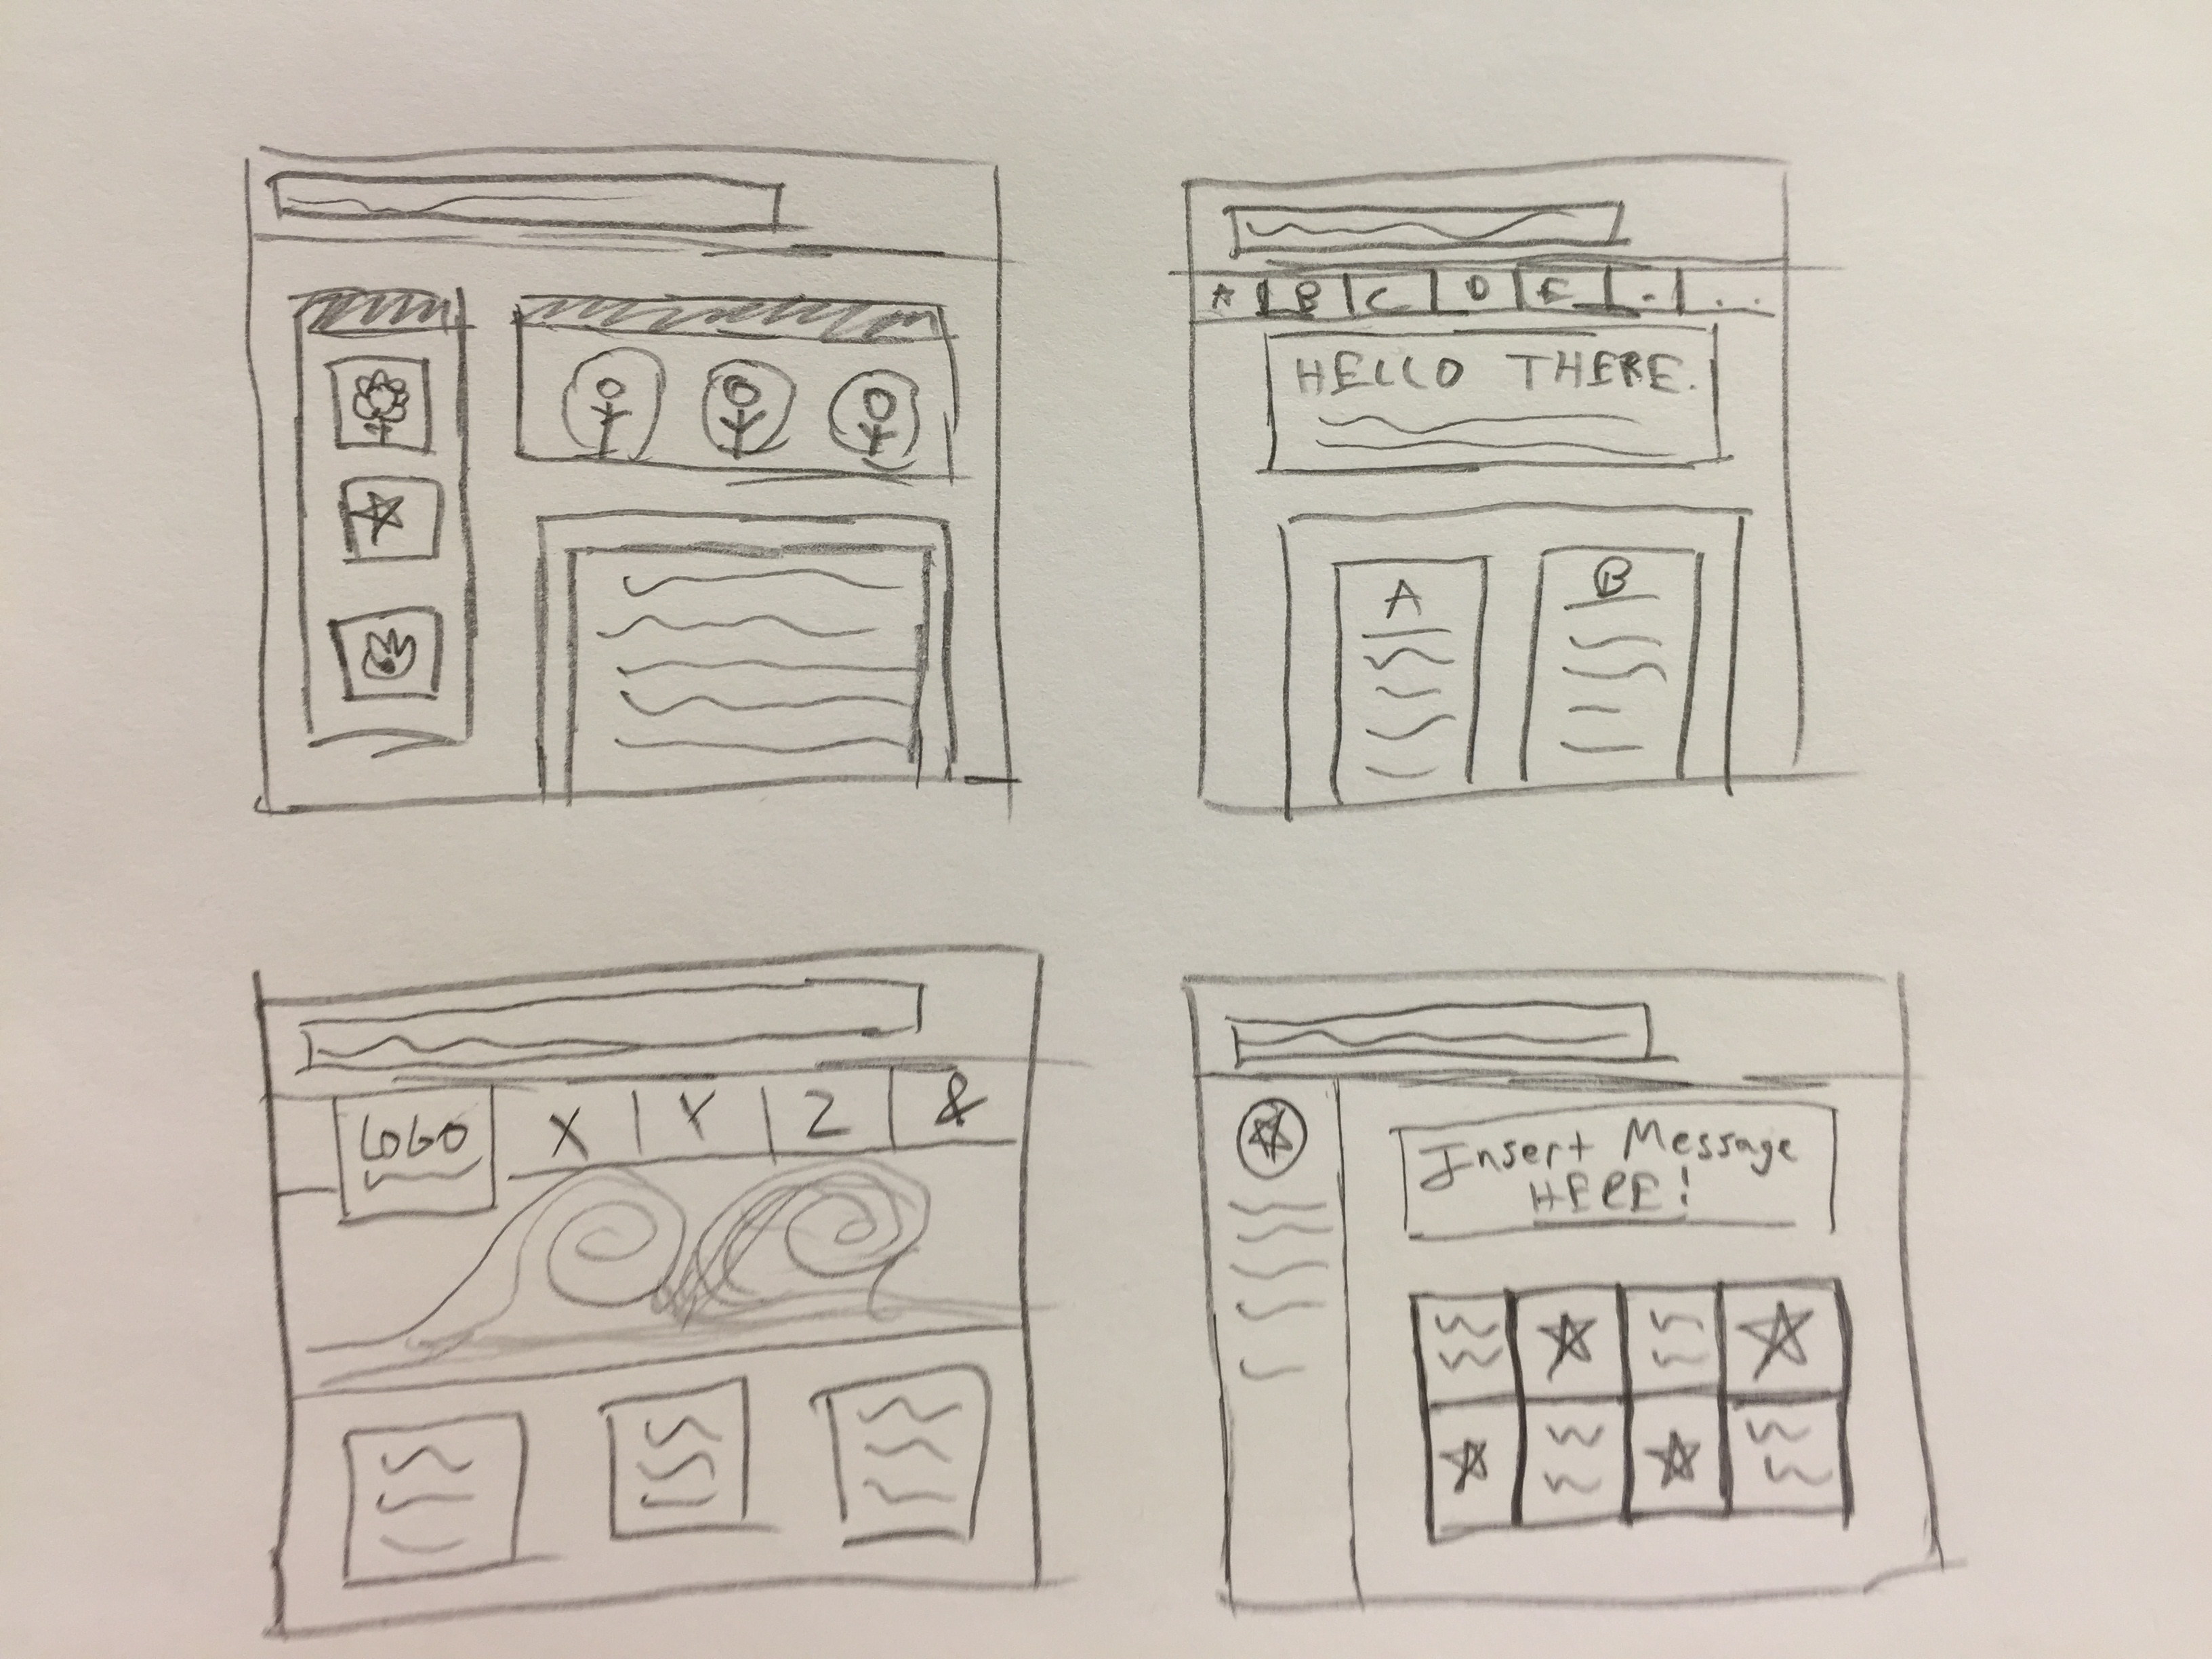 A B C D E . . . .
HELLO THERE.
A
B
LOGO
X Y Z &
Insert Message
HERE!